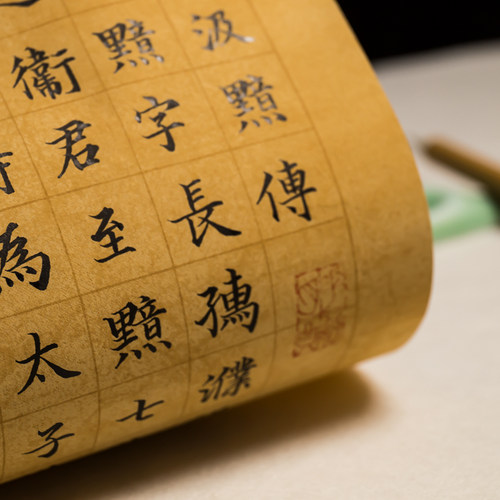 汲黯傳
黯字長孺濮
衛君至黯七
為太子